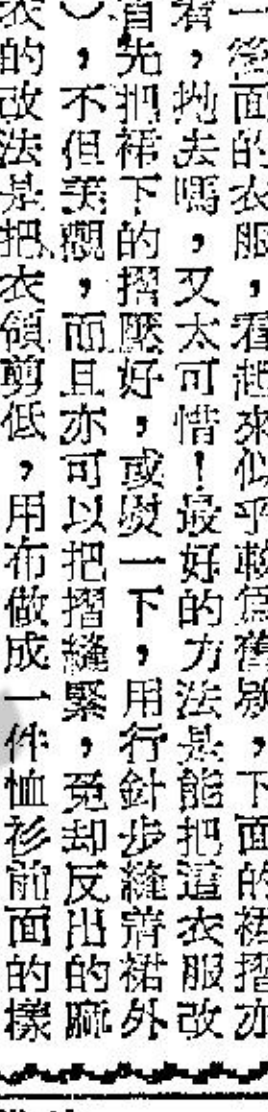 一後面的衣服，看起來似乎較爲舊别，下面的裙摺亦
着，抛去嗎，又太可惜！最好的方法是能把這衣服改
首先把裙下的摺壓好，或熨一下，用行針步縫着裙外
），不但美觀，而且亦可以把摺縫緊，免却反出的麻
衣的改法是把衣領剪低，用布做成一件恤衫前面的樣